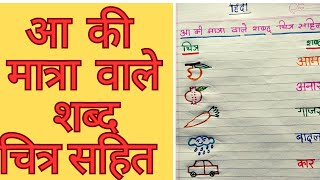 आ की
मात्रा वाले
शब्द
चित्र सहित
हिंदी
आ की मात्रा वाले शब्द चित्र सहित
चित्र
आम
अनार
गाजर
बादल
कार